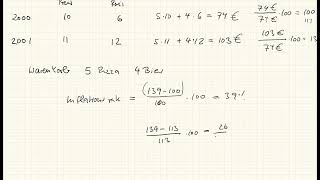 2000 10 6 5·10 + 4·6 = 74 € 74 €/74 € ·100 = 100
2001 11 12 5·11 + 4·12 = 103 € 103 €/74 € ·100 = 13
Warenkorb 5 Pizza 4 Bier
Inflationsrate = (139-100)/100 · 100 = 39%
139-113/113 ·100 = 26